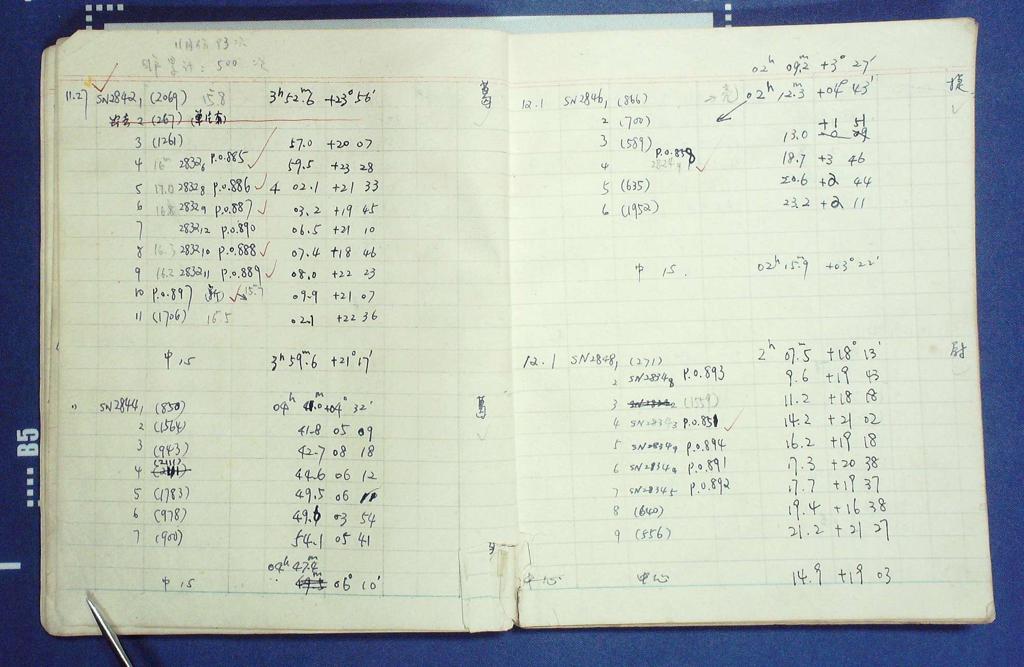 11.27 SN2842, (2069) 15.8 3h 52m.6 +23° 56'
2 (267)
3 (1261) 57.0 +20 07
4 2832₆ P.O.885 59.5 +23 28
5 17.0 2832₈ P.O.886 4 02.1 +21 33
6 16.8 2832₉ P.O.887 03.2 +19 45
7 2832₁₂ P.O.890 06.5 +21 10
8 16.3 2832₁₀ P.O.888 07.4 +18 46
9 16.2 2832₁₁ P.O.889 08.0 +22 23
10 P.O.897 (新) 15.7 09.9 +21 07
11 (1706) 16.5 02.1 +22 36
中心 3h 59m.6 +21° 17'
" SN2844, (850) 04h 41m.0 +04° 32'
2 (1564) 41.8 05 09
3 (943) 42.7 08 18
4 (2111) 44.6 06 12
5 (1783) 49.5 06
6 (978) 49.6 03 54
7 (900) 54.1 05 41
04h 47.4m
中心 06° 10'
02h 09m.2 +3° 27'
12.1 SN2846, (866) 02h 12m.3 +04° 43' 捷
2 (700) +1 51
3 (589) 13.0
4 P.O.858 18.7 +3 46
5 (635) 20.6 +2 44
6 (1952) 23.2 +2 11
中心 02h 15m.9 +03° 22'
12.1 SN2848, (271) 2h 07m.5 +18° 13' 尉
2 SN2834₈ P.O.893 9.6 +19 43
3 (1559) 11.2 +18 18
4 SN2834₃ P.O.851 14.2 +21 02
5 SN2834₉ P.O.894 16.2 +19 18
6 SN2834₄ P.O.891 17.3 +20 38
7 SN2834₅ P.O.892 17.7 +19 37
8 (640) 19.4 +16 38
9 (556) 21.2 +21 27
中心 14.9 +19 03
B5